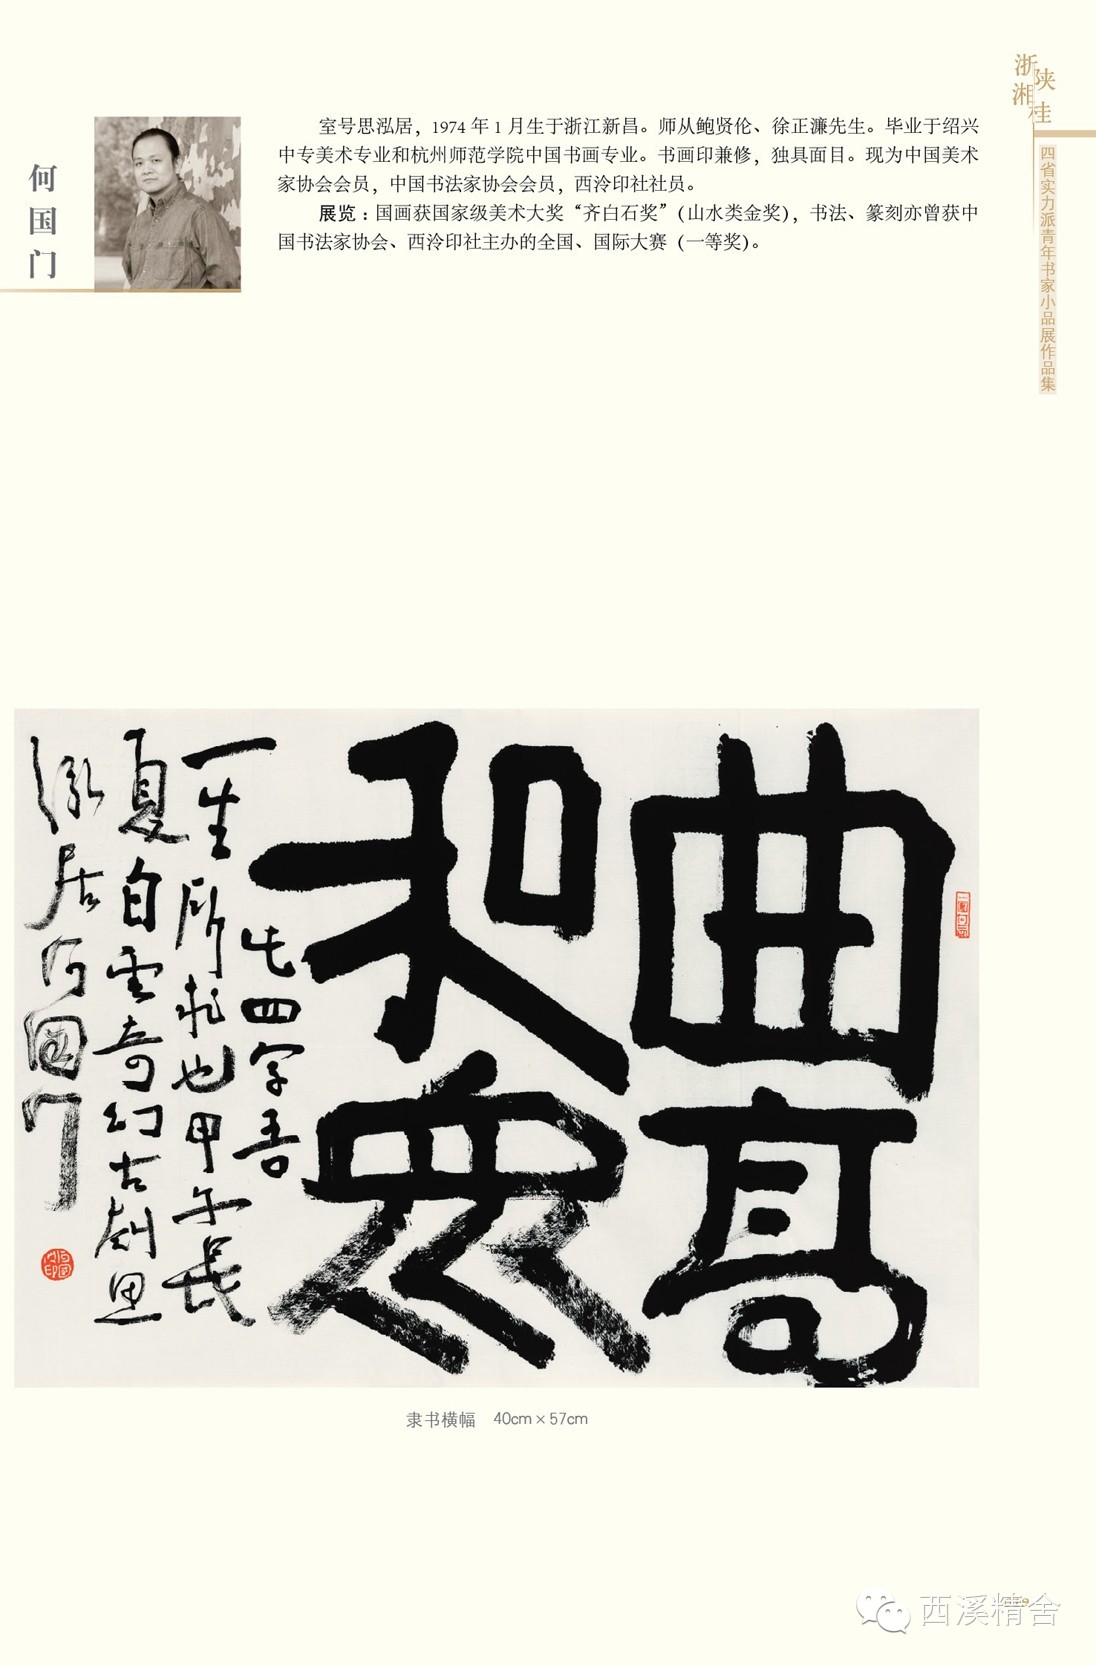 浙
湘
陕
桂
四省实力派青年书家小品展作品集
何国门
室号思泓居，1974 年 1 月生于浙江新昌。师从鲍贤伦、徐正濂先生。毕业于绍兴
中专美术专业和杭州师范学院中国书画专业。书画印兼修，独具面目。现为中国美术
家协会会员，中国书法家协会会员，西泠印社社员。
展览：国画获国家级美术大奖“齐白石奖”（山水类金奖），书法、篆刻亦曾获中
国书法家协会、西泠印社主办的全国、国际大赛（一等奖）。
曲高
和众
四字吾
一生所求也甲午长
夏白云奇幻古剡思
泓居何國门
隶书横幅 40cm×57cm
西溪精舍